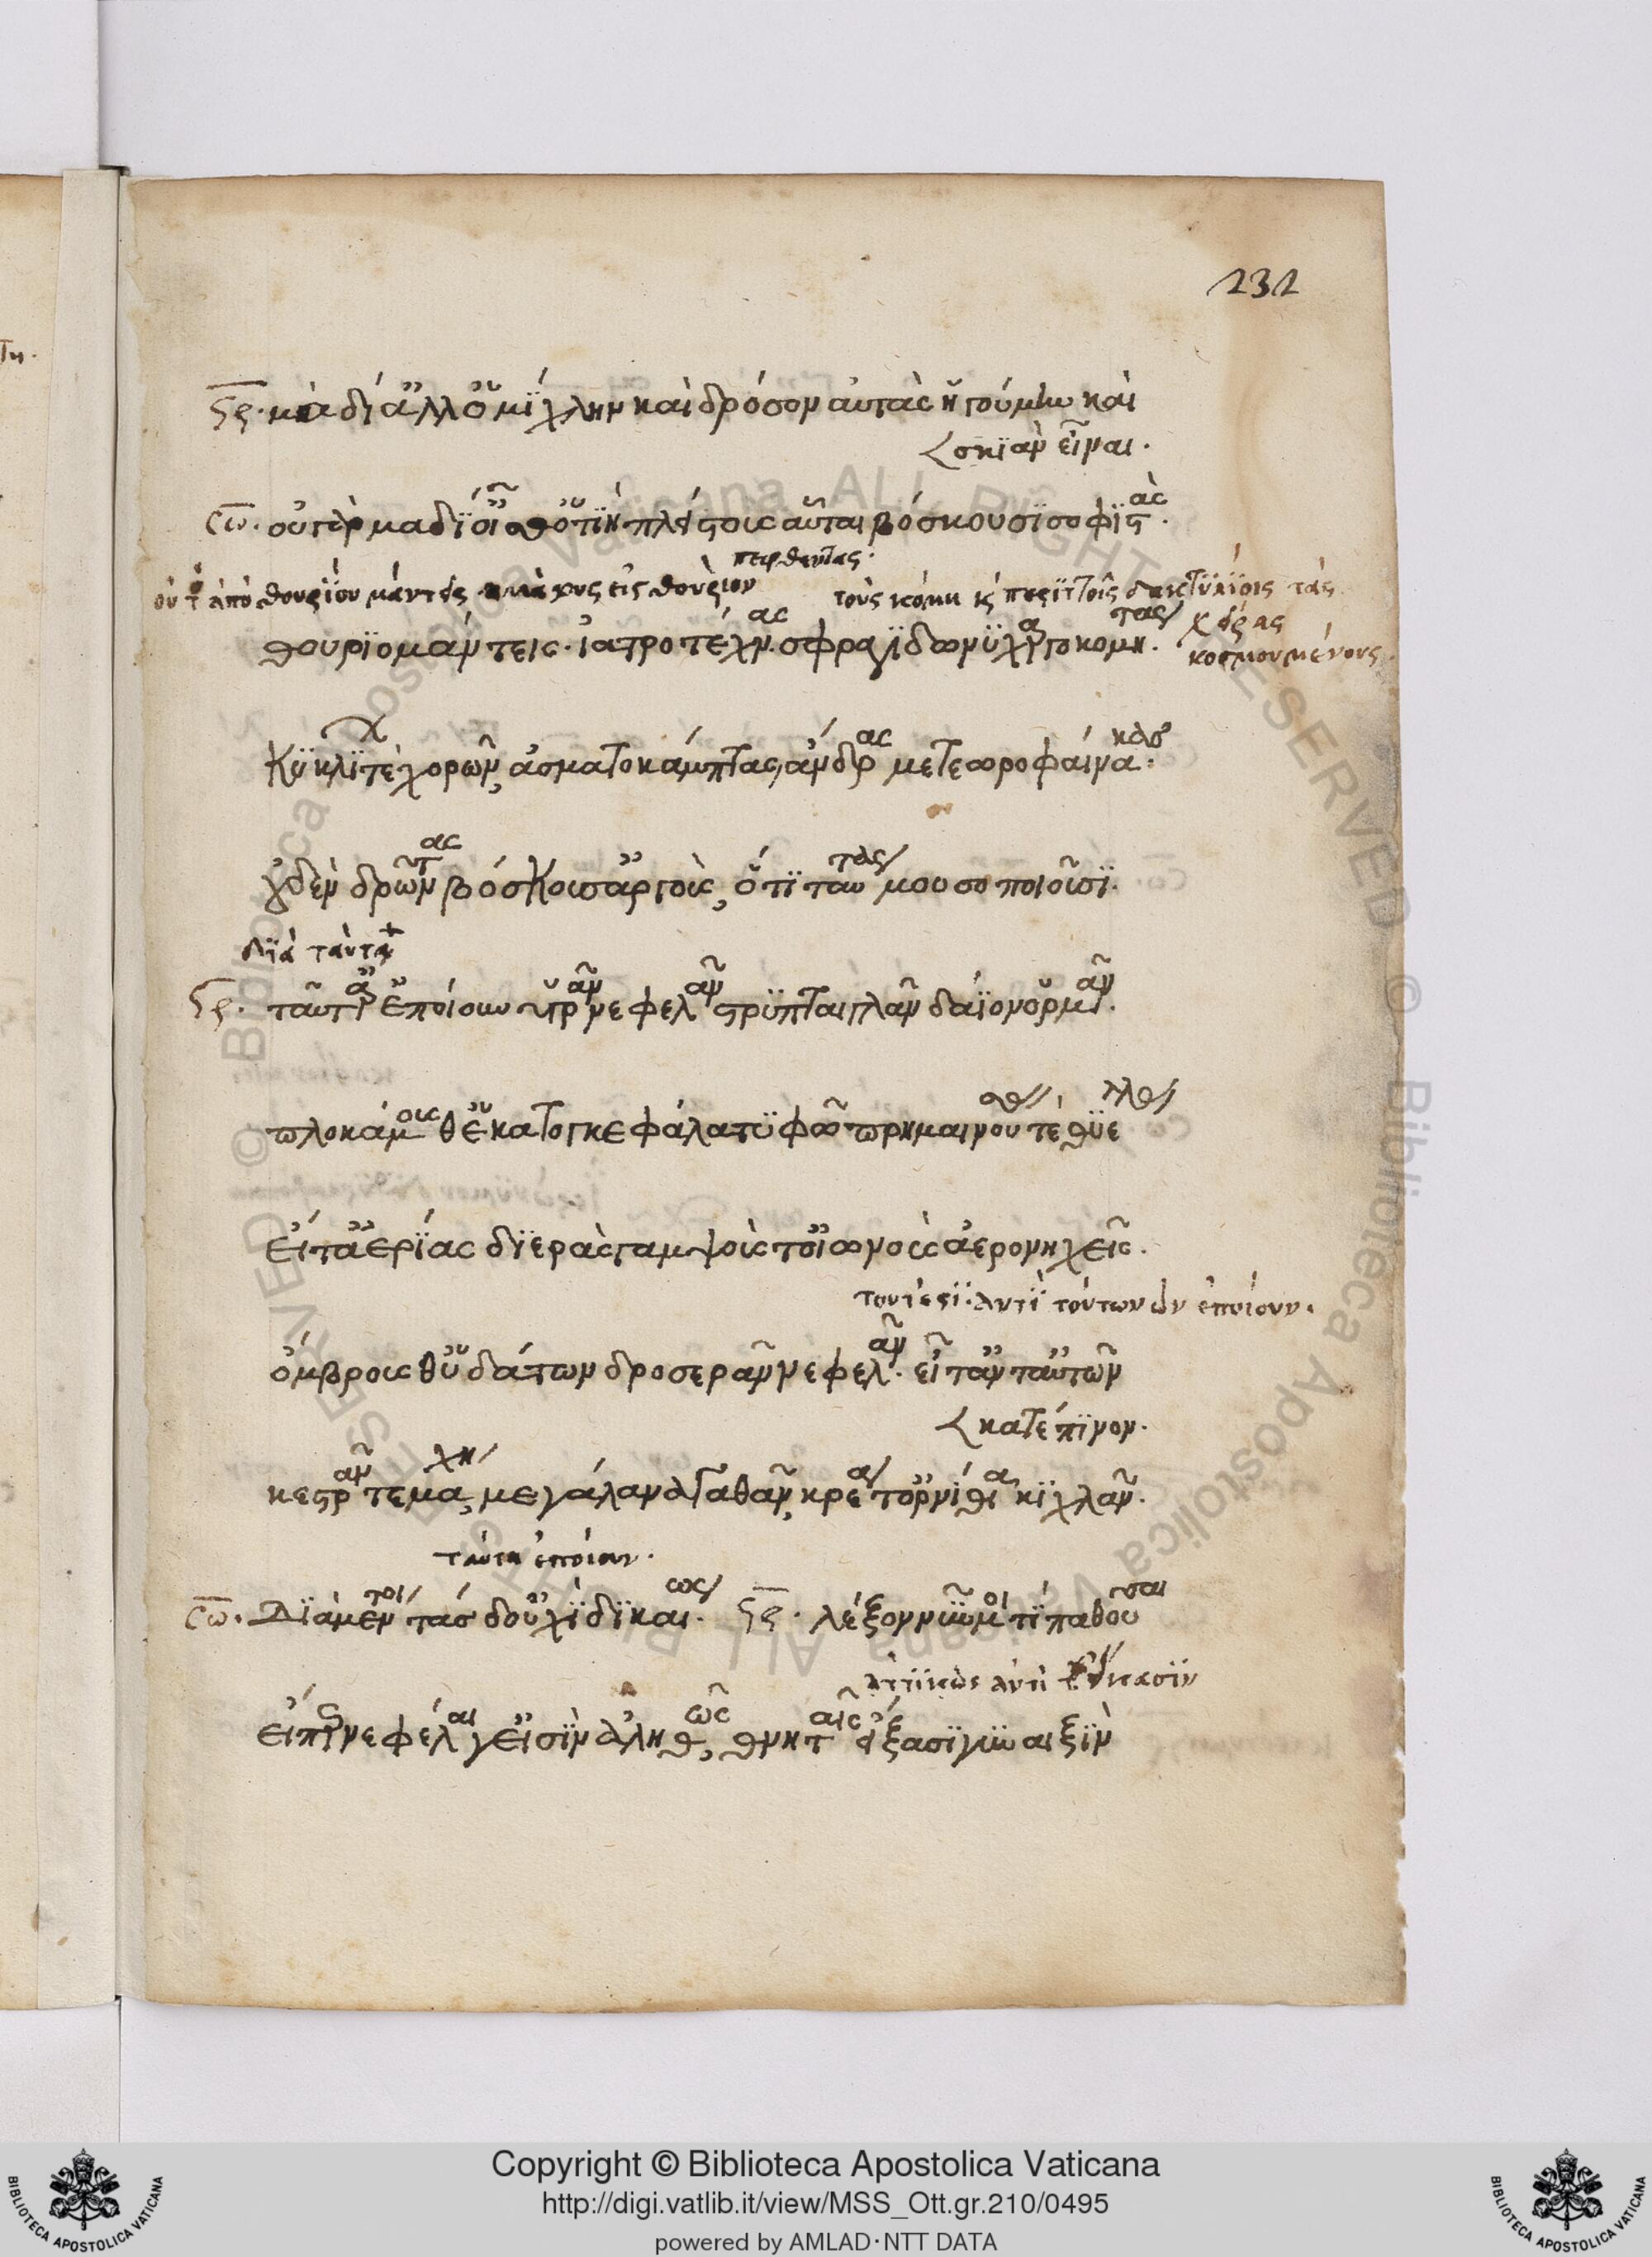 232
Στρ. μὰ δί' ἀλλ' ὀμίχλην καὶ δρόσον αὐτὰς ἡγούμην καὶ
σκϊὰν εἶναι.
Σω. οὐ γὰρ μὰ δί' οἶσθ' ὁτϊὴ πλείστους αὗται βόσκουσϊ σοφϊστάς.
πεμφθέντας.
ἀπὸ θουρίου μάντεις εἰς θούριον τοὺς κόμη καὶ περὶ τοῖς δακτυλίοις τὰς
χεῖρας
κοσμουμένους.
θουρϊομάντεις. ἰατροτέχνας. σφραγϊδονυχαργοκομήτας
Κυκλίων τε χορῶν ἀσματοκάμπτας, ἄνδρας μετεωροφαίνακας.
οὐδὲν δρῶντας βόσκουσ' ἀργοὺς, ὅτϊ ταύτας μουσοποιοῦσϊ.
Δϊὰ ταῦτα
Στρ. ταῦτ' ἄρ' ἐποίουν ὑγρᾶν νεφελᾶν στρεπταιγλᾶν δάϊον ὁρμάν.
πλοκάμους θ' ἑκατογκεφάλα τυφῶ πρημαινούσας τε θυέλλας
εἶτ' ἀερίας διερὰς γαμψοὺς τ' οἰωνοὺς ἀερονηχεῖς.
τουτέστϊ. ἀντὶ τούτων ὧν ἐποίουν.
ὄμβρους θ' ὑδάτων δροσερᾶν νεφελᾶν. εἶτ' ἀντ' αὐτῶν
κατέπϊνον.
κεστρᾶν τεμάχη, μεγάλαν ἀγαθᾶν, κρέα τ' ὀρνίθεια κϊχλᾶν.
ταῦτα ἐποίουν.
Σω. Δϊὰ μέντοι τάσδ' οὐχὶ δϊκαίως. Στρ. λέξον νῦν μοι τϊ παθοῦσαι
ἀττϊκῶς ἀντὶ ἐοίκασϊν
εἴπερ νεφέλαι γ' εἰσϊν ἀληθῶς, θνηταῖς εἴξασϊ γυναιξὶν
Copyright © Biblioteca Apostolica Vaticana
http://digi.vatlib.it/view/MSS_Ott.gr.210/0495
powered by AMLAD·NTT DATA